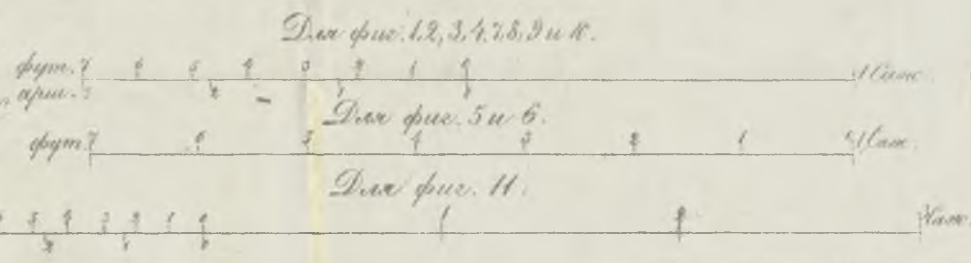 Для фиг. 1, 2, 3, 4, 7, 8, 9 и 10.
фут. 7 6 5 4 3 2 1 0 1 Саж.
арш. 3 2 1 0
Для фиг. 5 и 6.
фут. 7 6 5 4 3 2 1 0 Саж.
Для фиг. 11.
5 4 3 2 1 0 1 2 Саж.
2 1 0